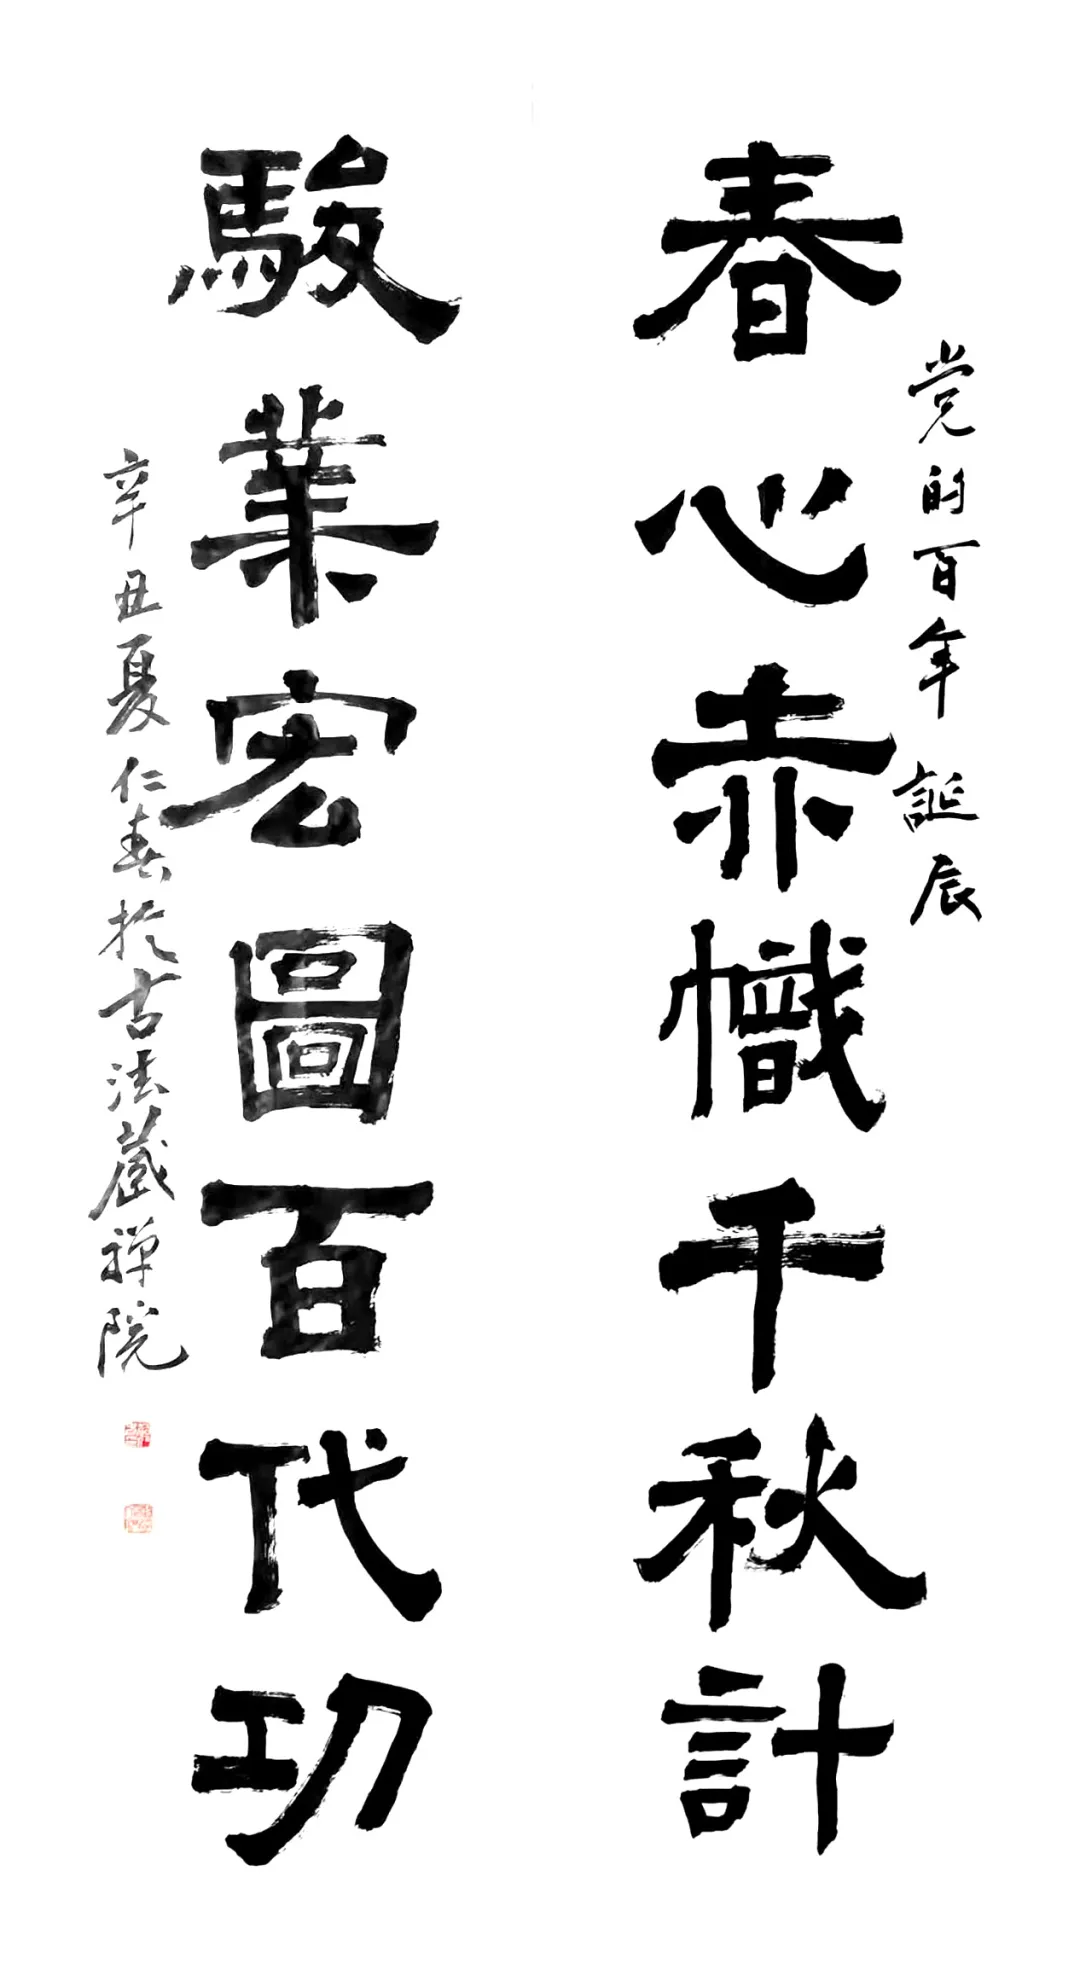 党的百年誕辰
春心赤幟千秋計
駿業宏圖百代功
辛丑夏仁春於古法藏禅院